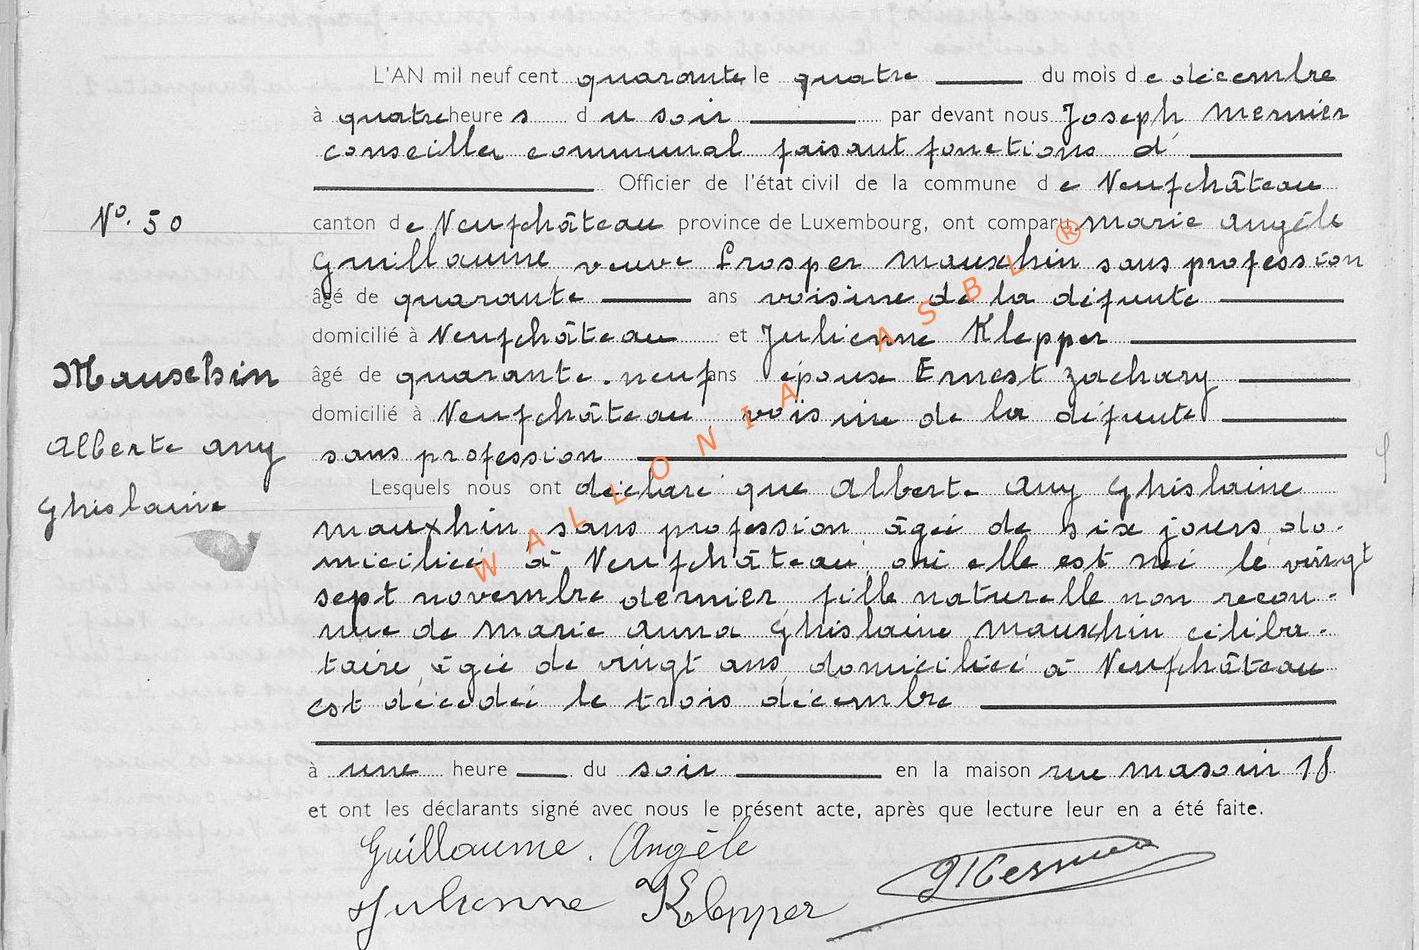 L'AN mil neuf cent quarante le quatre du mois de décembre
à quatre heures du soir par devant nous Joseph Mernier
conseiller communal faisant fonctions d'
Officier de l'état civil de la commune de Neufchâteau
N° 50
canton de Neufchâteau province de Luxembourg, ont comparu Marie Angèle
Guillaume, veuve Prosper Mauxhin sans profession
âgé de quarante ans voisine de la défunte
domicilié à Neufchâteau et Julienne Klepper
Mauxhin
âgé de quarante-neuf ans épouse Ernest Zachary
domicilié à Neufchâteau voisine de la défunte
Alberte Any
sans profession
Lesquels nous ont déclaré que Alberte Any Ghislaine
Ghislaine
Mauxhin, sans profession âgée de six jours do-
miciliée à Neufchâteau où elle est née le vingt
sept novembre dernier, fille naturelle non recon-
nue de Marie Anna Ghislaine Mauxhin céliba-
taire, âgée de vingt ans, domiciliée à Neufchâteau
est décédée le trois décembre
à une heure du soir en la maison rue Masoin 18
et ont les déclarants signé avec nous le présent acte, après que lecture leur en a été faite.
Guillaume. Angèle
Julienne Klepper
WALLONIA ASBL ®